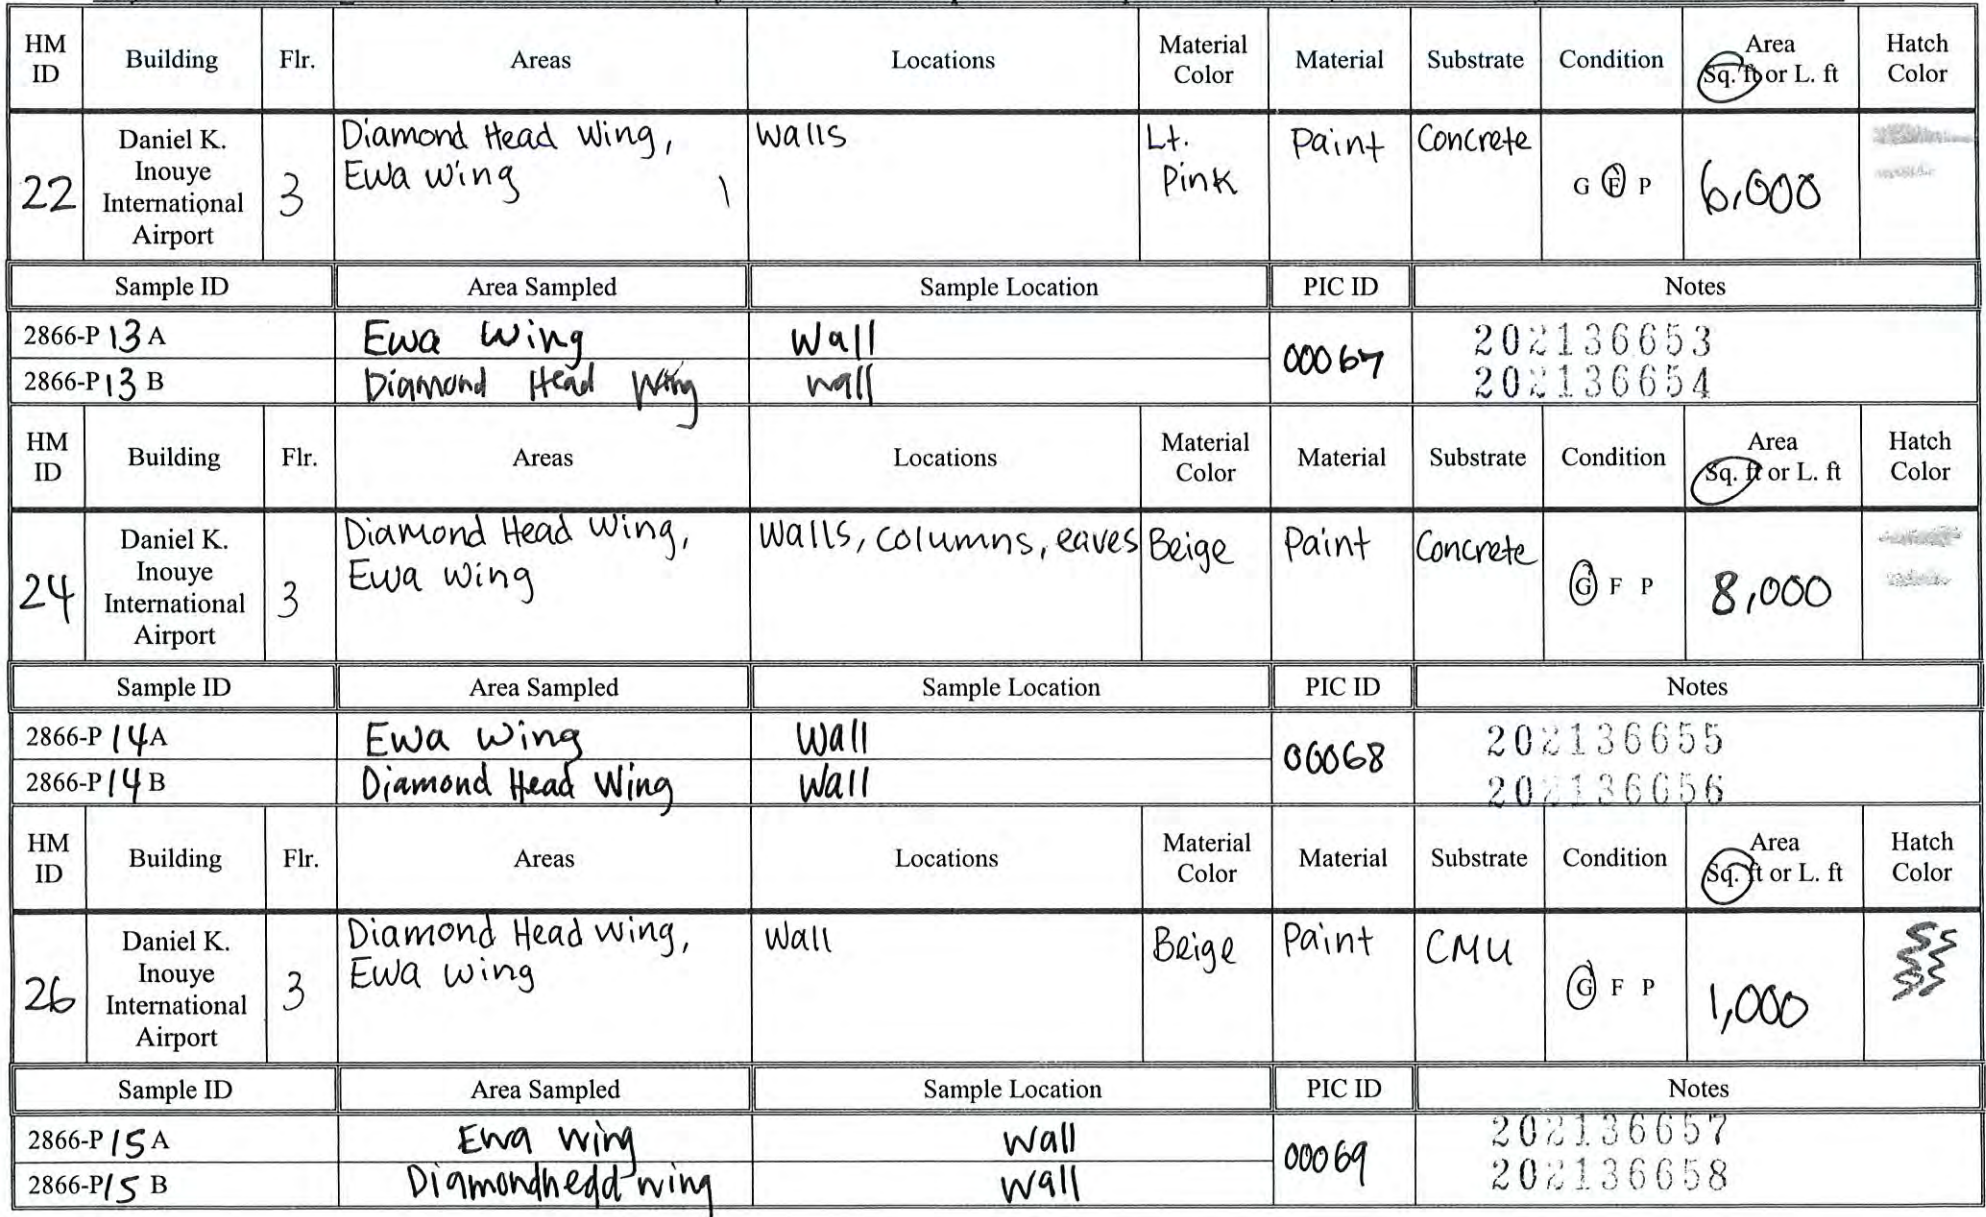 HM ID Building Flr. Areas Locations Material Color Material Substrate Condition Area Sq. ft or L. ft Hatch Color
22 Daniel K. Inouye International Airport 3 Diamond Head Wing, Ewa wing Walls Lt. Pink Paint Concrete G F P 6,000
Sample ID Area Sampled Sample Location PIC ID Notes
2866-P 13 A Ewa Wing Wall 00067 202136653
2866-P 13 B Diamond Head Wing wall 202136654
HM ID Building Flr. Areas Locations Material Color Material Substrate Condition Area Sq. ft or L. ft Hatch Color
24 Daniel K. Inouye International Airport 3 Diamond Head Wing, Ewa wing Walls, columns, eaves Beige Paint Concrete G F P 8,000
Sample ID Area Sampled Sample Location PIC ID Notes
2866-P 14 A Ewa Wing Wall 00068 202136655
2866-P 14 B Diamond Head Wing Wall 202136656
HM ID Building Flr. Areas Locations Material Color Material Substrate Condition Area Sq. ft or L. ft Hatch Color
26 Daniel K. Inouye International Airport 3 Diamond Head wing, Ewa wing Wall Beige Paint CMU G F P 1,000
Sample ID Area Sampled Sample Location PIC ID Notes
2866-P 15 A Ewa Wing Wall 00069 202136657
2866-P 15 B Diamondhead wing Wall 202136658